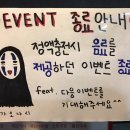 EVENT 종료안내
정액충전시 음료를
제공하던 이벤트 종료
feat. 다음 이벤트를
기대해주세요^^
가오나시